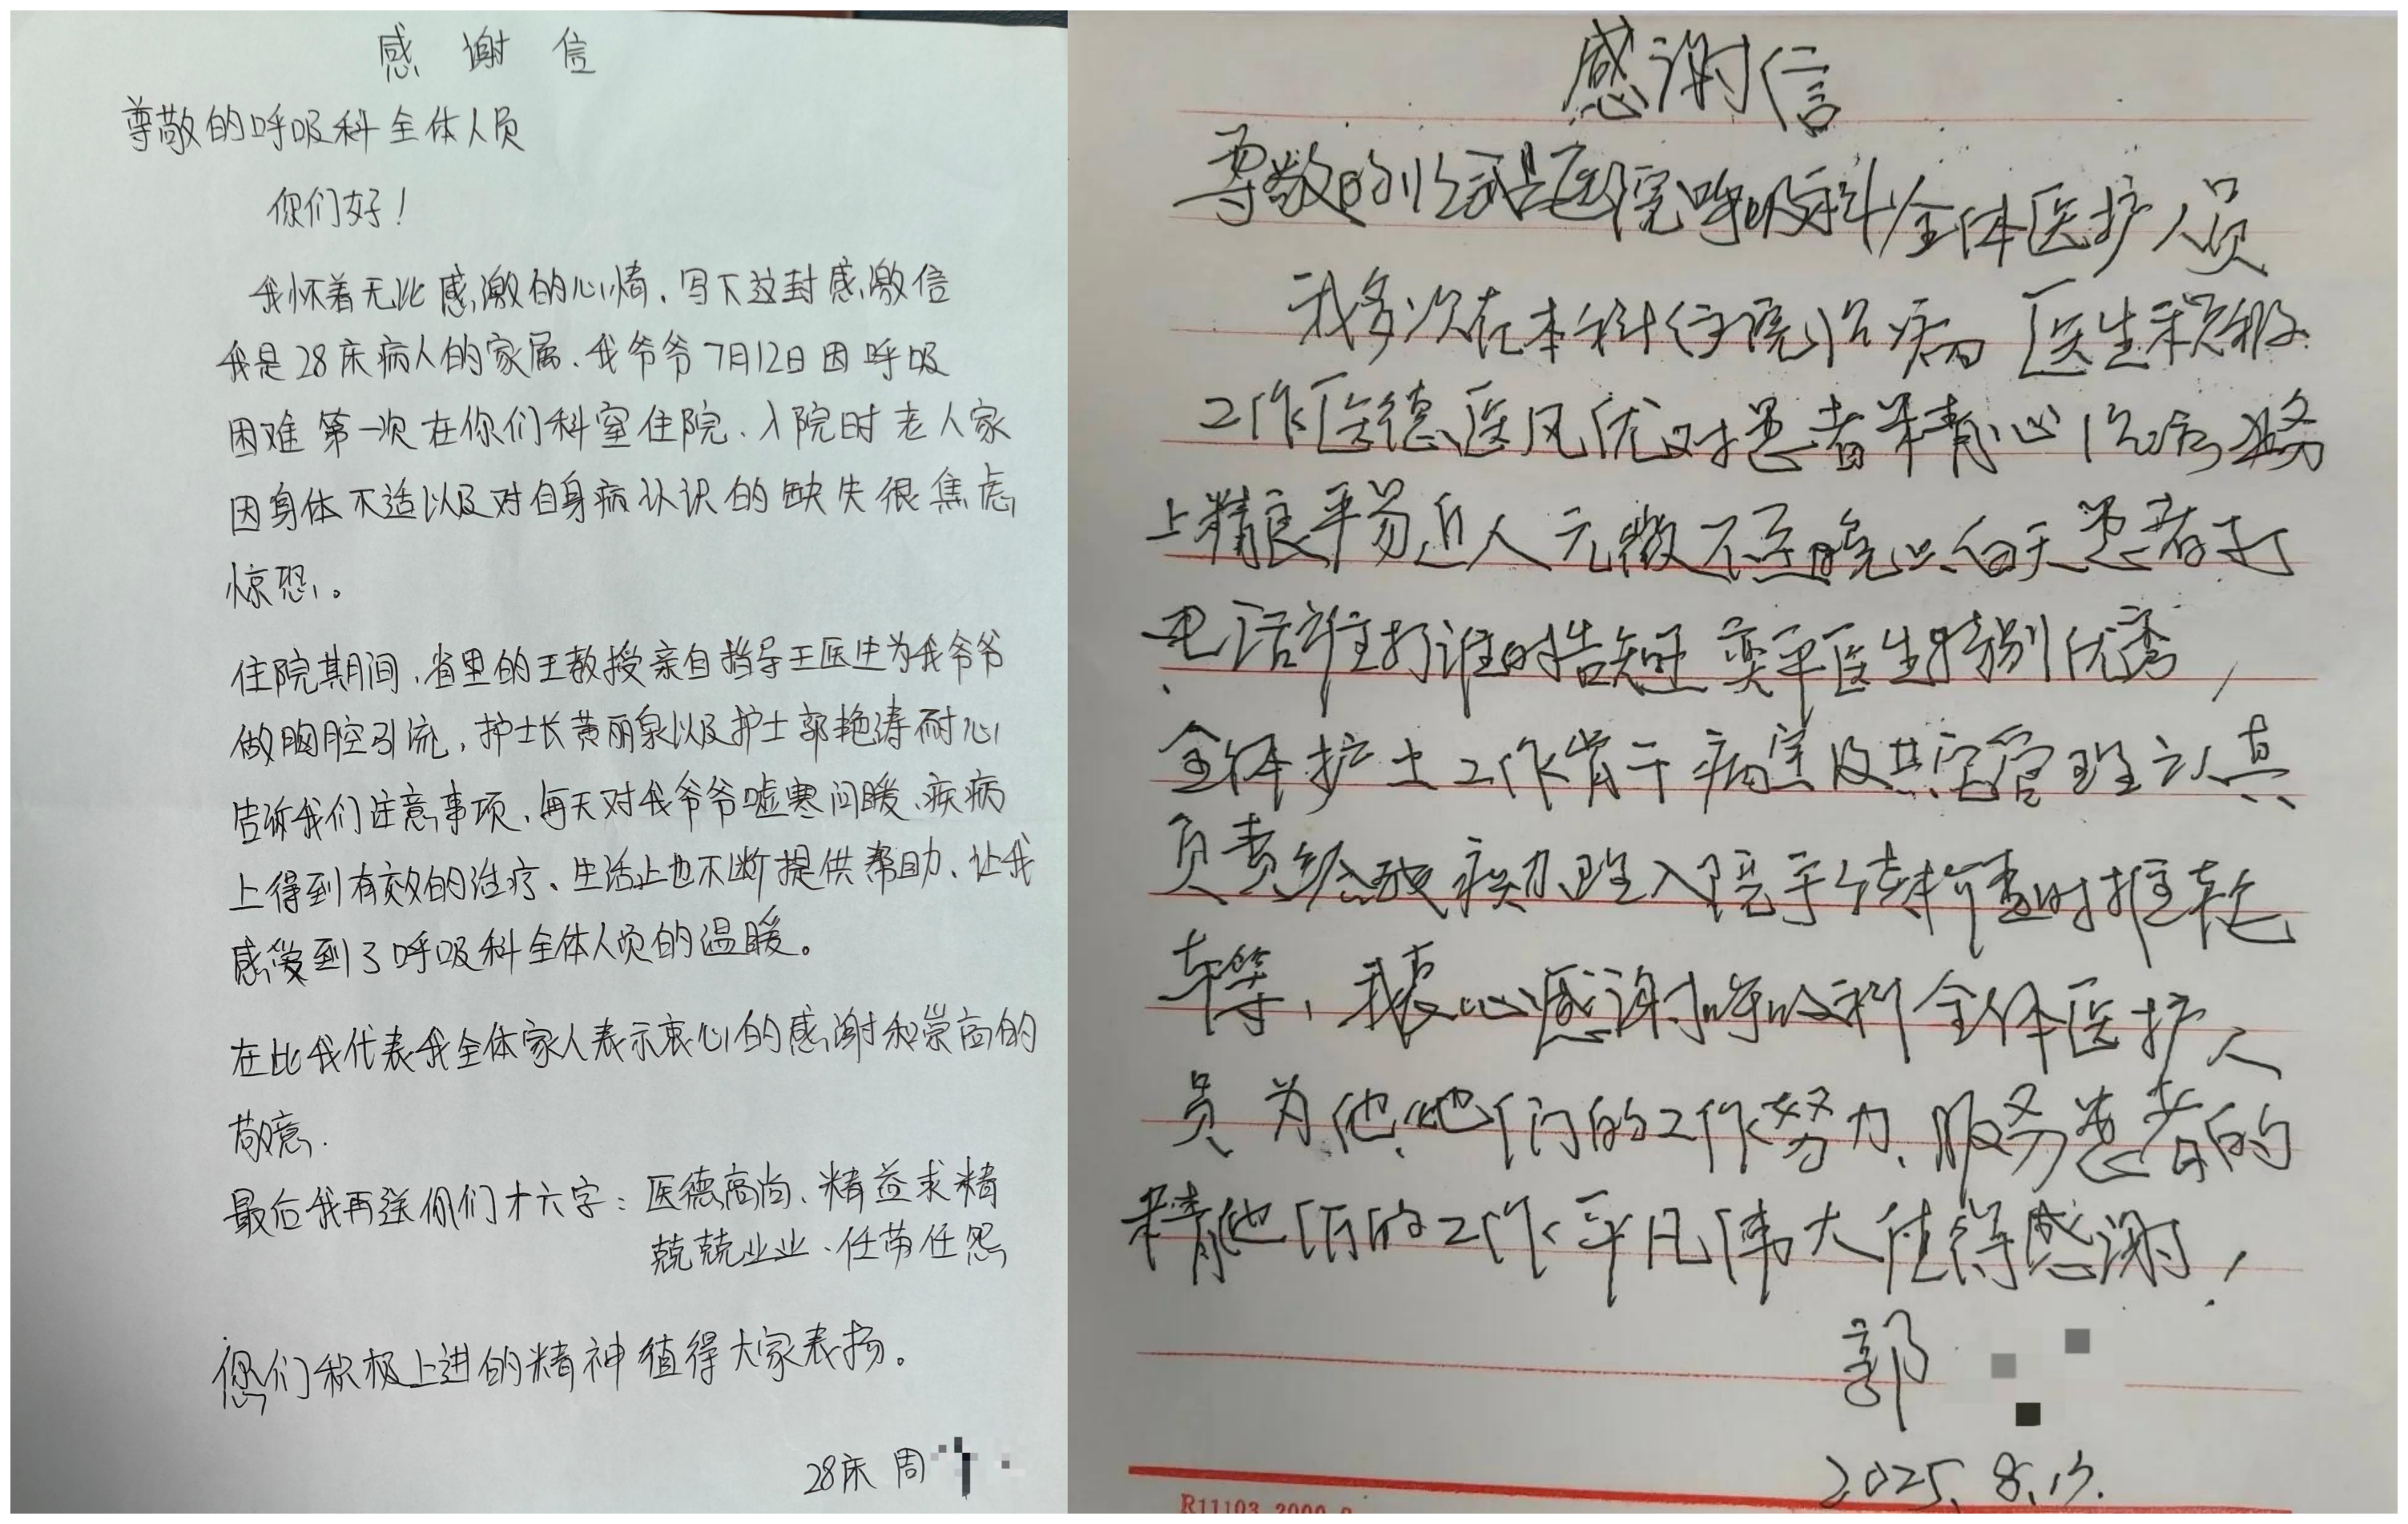 感谢信
尊敬的呼吸科全体人员
你们好！
我怀着无比感激的心情、写下这封感激信
我是28床病人的家属、我爷爷7月12日因呼吸
困难第一次在你们科室住院、入院时老人家
因身体不适以及对自身病认识的缺失很焦虑
惊恐。
住院期间，省里的王教授亲自指导王医生为我爷爷
做胸腔引流，护士长黄丽泉以及护士郭艳涛耐心
告诉我们注意事项，每天对我爷爷嘘寒问暖、疾病
上得到有效的治疗、生活上也不断提供帮助、让我
感受到了呼吸科全体人员的温暖。
在此我代表我全体家人表示衷心的感谢和崇高的
敬意.
最后我再送你们十六字：医德高尚、精益求精
兢兢业业、任劳任怨
您们积极上进的精神值得大家表扬。
28床 周
感谢信
尊敬的医院呼吸科全体医护人员
我多次在本科住院治病 医生积极
工作医德医风优对患者精心治病
上精良平易近人无微不至 白天患者打
电话 医生特别优秀，
全体护士工作肯干病室及 管理认真
负责给 办理入院手续检查时推轮
车等，我衷心感谢呼吸科全体医护人
员为他她们的工作努力、服务患者的
精 他们的工作平凡伟大值得感谢，
郭
2025.8.13.
R11103